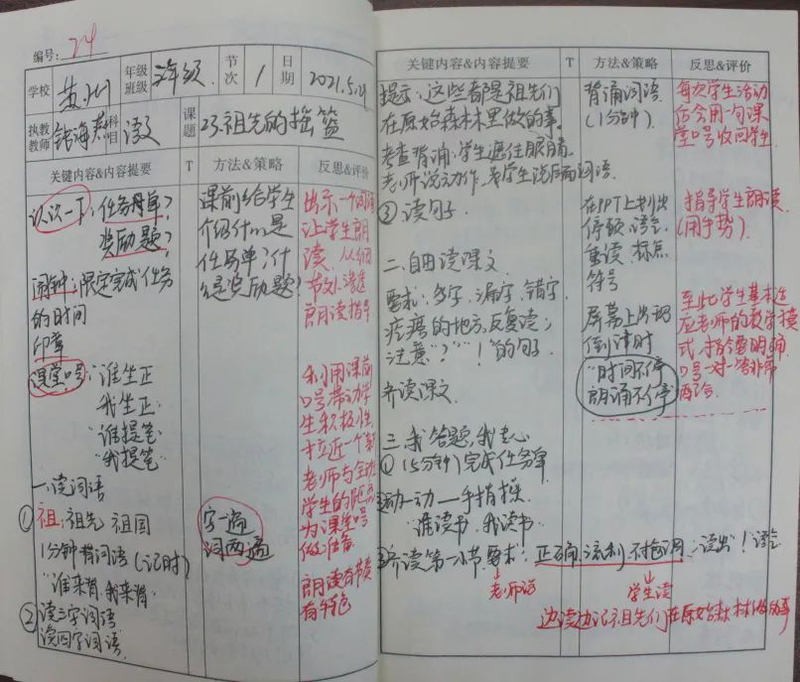 编号: 24
学校 苏州 年级班级 二年级 节次 1 日期 2021.5.21
执教教师 张海 科目 语文 课题 23.祖先的摇篮
关键内容&内容提要 T 方法&策略 反思&评价
认识一下:任务单?
奖励题?
闹钟:限定完成任务
的时间
印章
课堂口号:“谁坐正
我坐正
“谁提笔
“我提笔”
一.读词语
①祖:祖先 祖国
1分钟背词语(记时)
“谁来背,我来背.
②读三字词语
读四字词语.
课前给学生
介绍什么是
任务单?什
么是奖励题?
字一遍
词两遍
出示一个词语
让学生朗
读,从细
节处渗透
朗读指导
利用课前
口号带动学
生积极性,
拉近一个新
老师与全班
学生的距离
为课堂口号
做准备
朗读有节奏
有特色
关键内容&内容提要 T 方法&策略 反思&评价
提示:这些都是祖先们
在原始森林里做的事.
考查背诵:学生遮住眼睛,
老师说动作,学生说后面词语.
③读句子.
二.自由读课文
要求:多字、漏字、错字,
疙瘩的地方,反复读;
注意“?”“!”的句子.
齐读课文.
三.我答题,我走心
①(5分钟)完成任务单
运动一动——手指操
“谁读书,我读书.
②齐读第一小节.要求:正确,流利,不拖调,读出!语气
老师读 学生读
边读边记祖先们在原始森林做的事
背诵词语
(1分钟)
在PPT上划出
停顿、语气
重读、标点
符号
屏幕上出现
倒计时
“时间不停
朗诵不停”
每次学生活动
后会用一句课
堂口号收回学生
指导学生朗读
(用手势).
至此学生基本适
应老师的教学模
式,指令要明确
口号一对一答非常
有效.